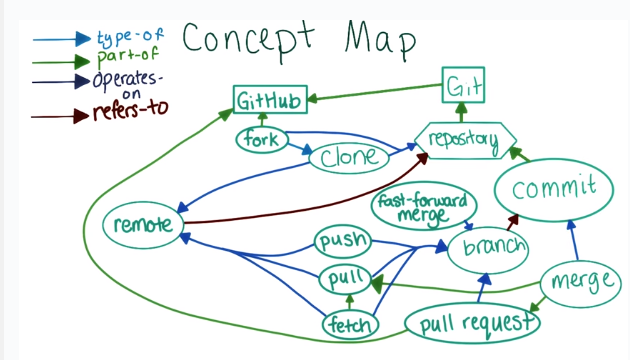 type-of
part-of
operates-
on
refers-to
Concept Map
GitHub
Git
fork
clone
repository
commit
fast-forward
merge
remote
push
branch
pull
merge
fetch
pull request